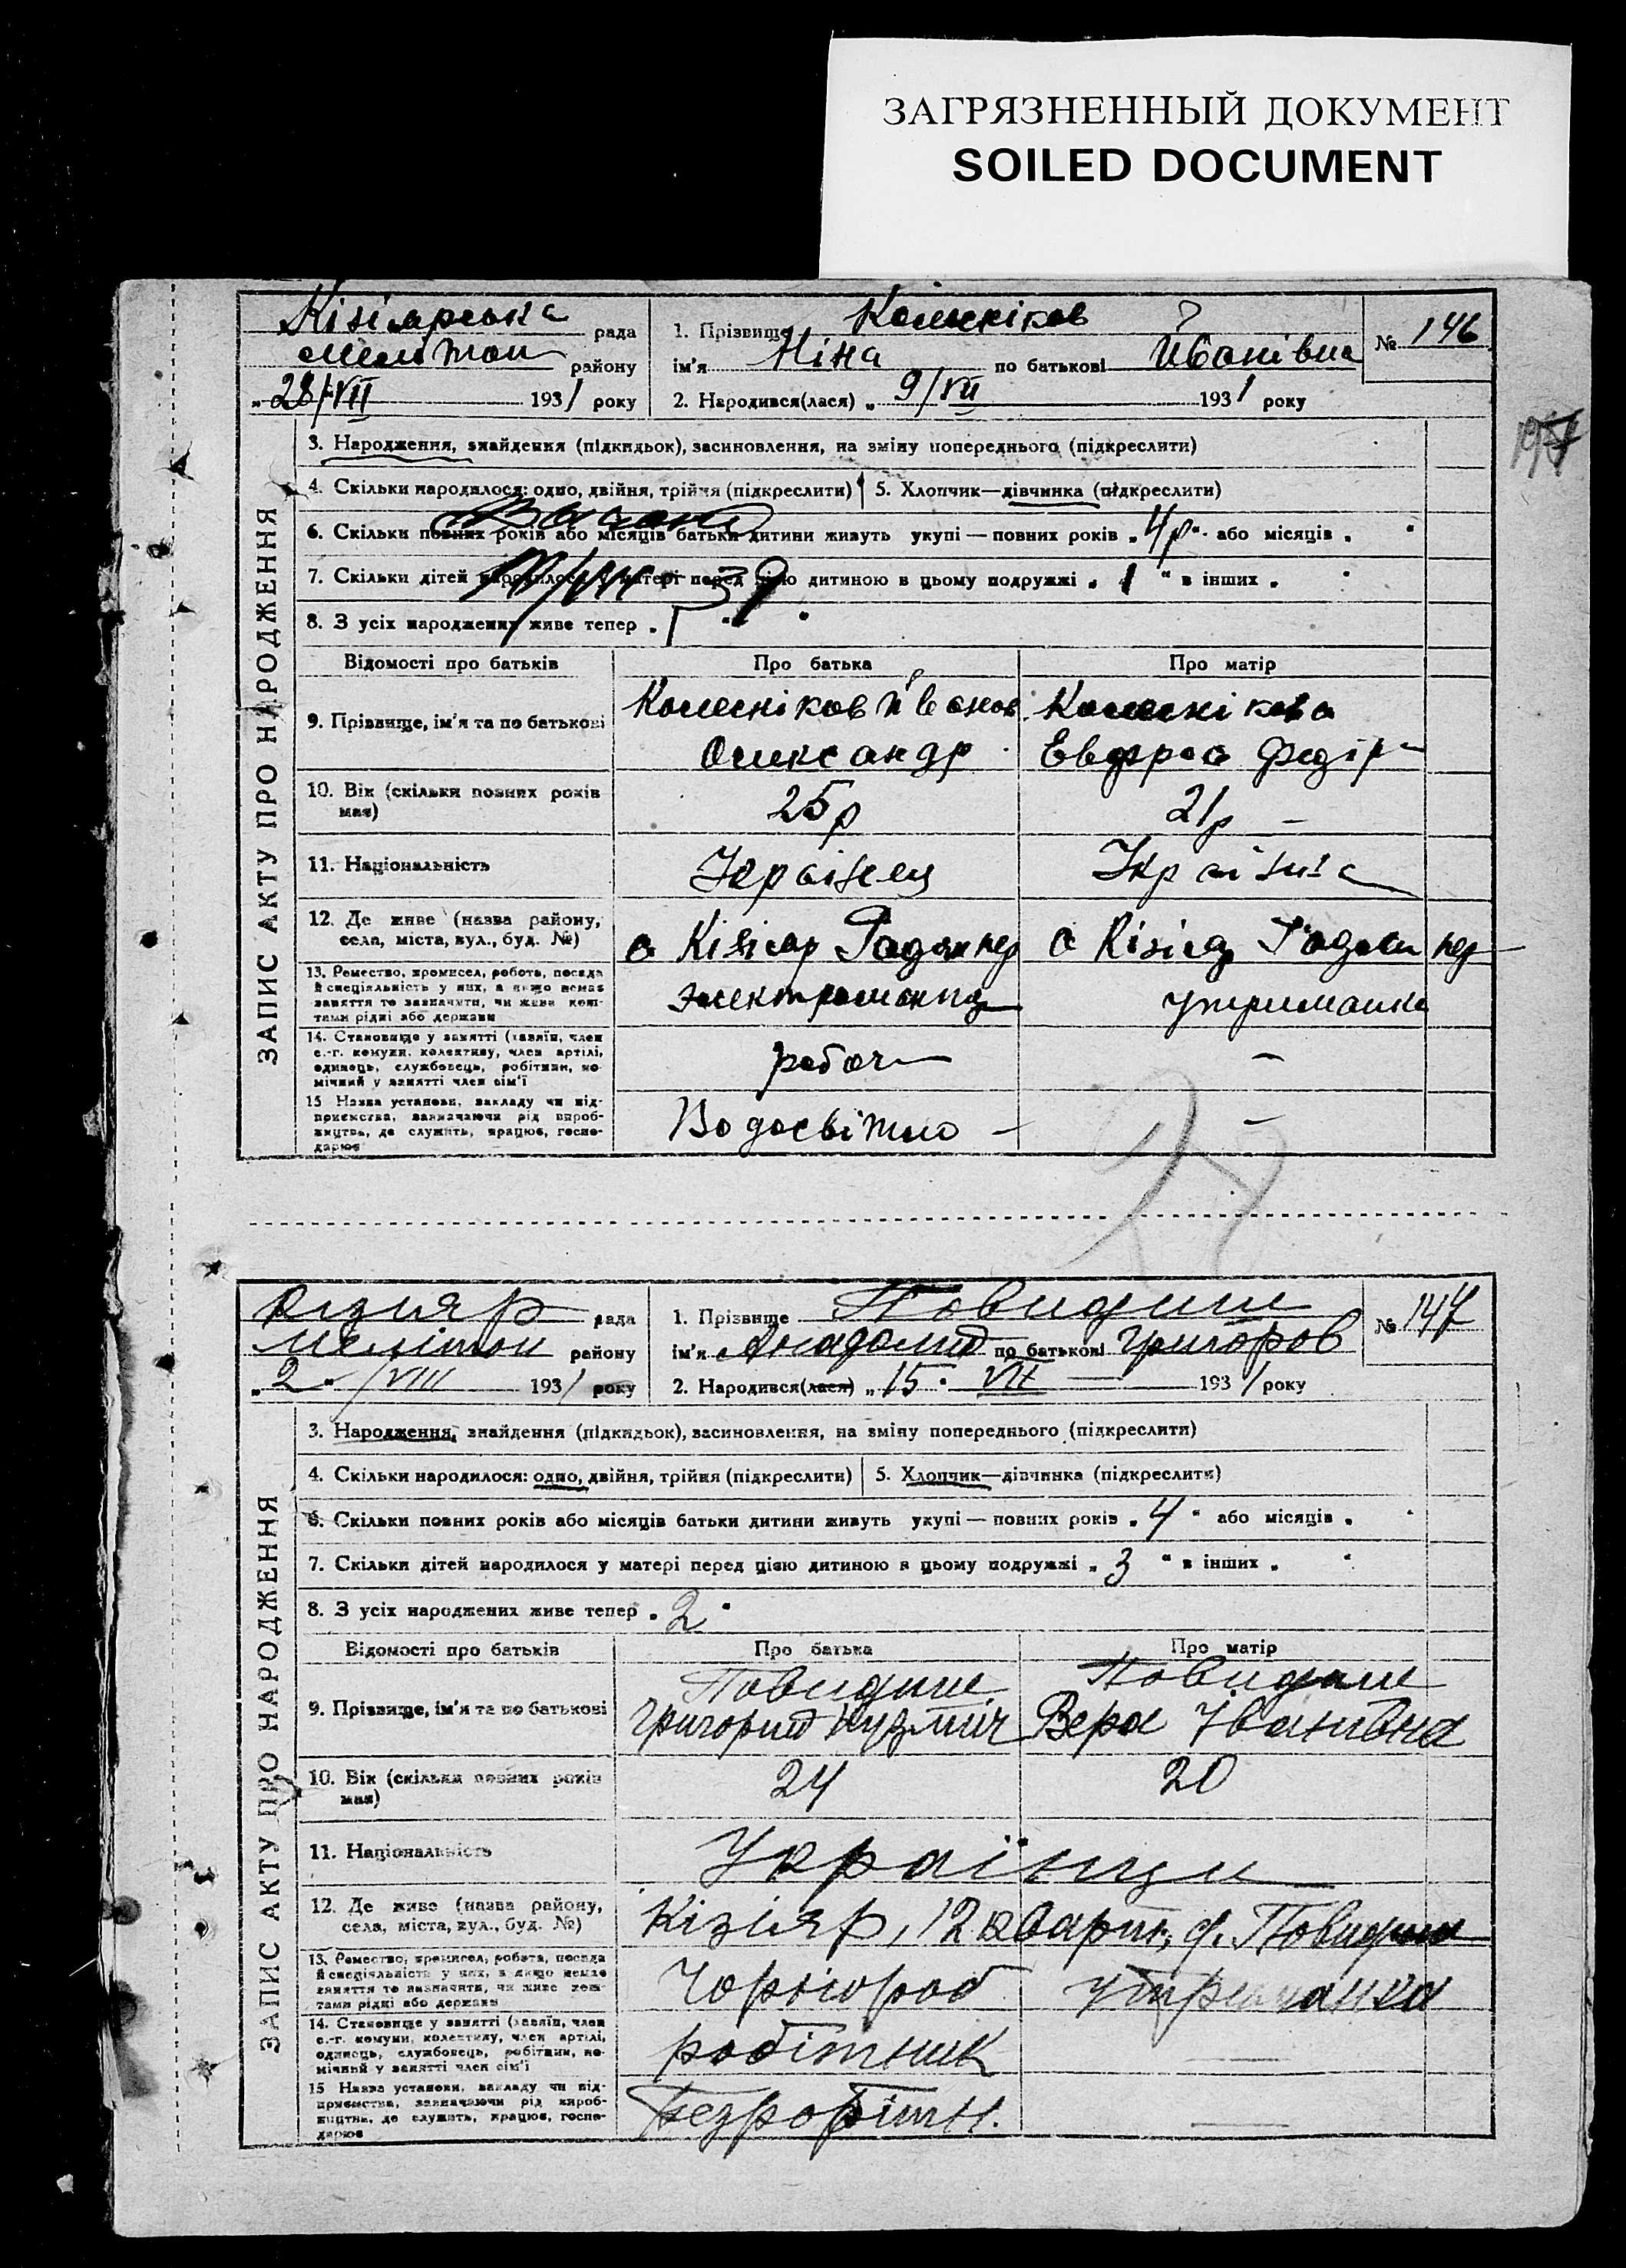 ЗАГРЯЗНЕННЫЙ ДОКУМЕНТ
SOILED DOCUMENT
Кізіярська рада
Мелітоп району
„28/VII 1931 року
1. Прізвище Колесніков
ім'я Ніна по батькові Ивонівна
2. Народився(лася) „ 9/VII 1931 року
№ 146
ЗАПИС АКТУ ПРО НАРОДЖЕННЯ
3. Народження, знайдення (підкидьок), засиновлення, на зміну попереднього (підкреслити)
4. Скільки народилося: одно, двійня, трійня (підкреслити)
5. Хлопчик—дівчинка (підкреслити)
6. Скільки повних років або місяців батьки дитини живуть укупі — повних років „ 4 р " або місяців „ "
7. Скільки дітей народилося у матері перед цією дитиною в цьому подружжі „ 1 " в інших „ "
8. З усіх народжених живе тепер „ 1 "
Відомості про батьків
Про батька
Про матір
9. Прізвище, ім'я та по батькові
Колесніков
Олександр
Колеснікова
Федір
10. Вік (скільки повних років має)
25р
21р —
11. Національність
Українец
Українка
12. Де живе (назва району, села, міста, вул., буд. №)
с Кізіяр Радян пер
с Кізіяр Радян пер
13. Ремество, промисел, робота, посада й спеціяльність у них, а якщо немає заняття то зазначити, чи живе коштами рідні або держави
электромонтр
утриманка
14. Становище у занятті (хазяїн, член с.-г. комуни, колективу, член артілі, одинець, службовець, робітник, помічний у занятті член сім'ї
робоч
—
15 Назва установи, закладу чи підприємства, зазначаючи рід виробництва, де служить, працює, господарює
Водосвітло —
—
Кізияр рада
Мелітоп району
„2" /VIII 1931 року
1. Прізвище Повидиш
ім'я Анадолий по батькові Григоров
2. Народився(лася) „ 15 " VII 1931 року
№ 147
ЗАПИС АКТУ ПРО НАРОДЖЕННЯ
3. Народження, знайдення (підкидьок), засиновлення, на зміну попереднього (підкреслити)
4. Скільки народилося: одно, двійня, трійня (підкреслити)
5. Хлопчик—дівчинка (підкреслити)
6. Скільки повних років або місяців батьки дитини живуть укупі — повних років „ 4 " або місяців „ "
7. Скільки дітей народилося у матері перед цією дитиною в цьому подружжі „ 3 " в інших „ "
8. З усіх народжених живе тепер „ 2 "
Відомості про батьків
Про батька
Про матір
9. Прізвище, ім'я та по батькові
Повидиш
Григорий Кузмич
Повидиш
Вера Іванивна
10. Вік (скільки повних років має)
24
20
11. Національність
Українци
12. Де живе (назва району, села, міста, вул., буд. №)
Кізіяр, 12 кварт, д. Повидиш
13. Ремество, промисел, робота, посада й спеціяльність у них, а якщо немає заняття то зазначити, чи живе коштами рідні або держави
Чорнороб
утриманка
14. Становище у занятті (хазяїн, член с.-г. комуни, колективу, член артілі, одинець, службовець, робітник, помічний у занятті член сім'ї
робітник
—
15 Назва установи, закладу чи підприємства, зазначаючи рід виробництва, де служить, працює, господарює
безробітн.
—